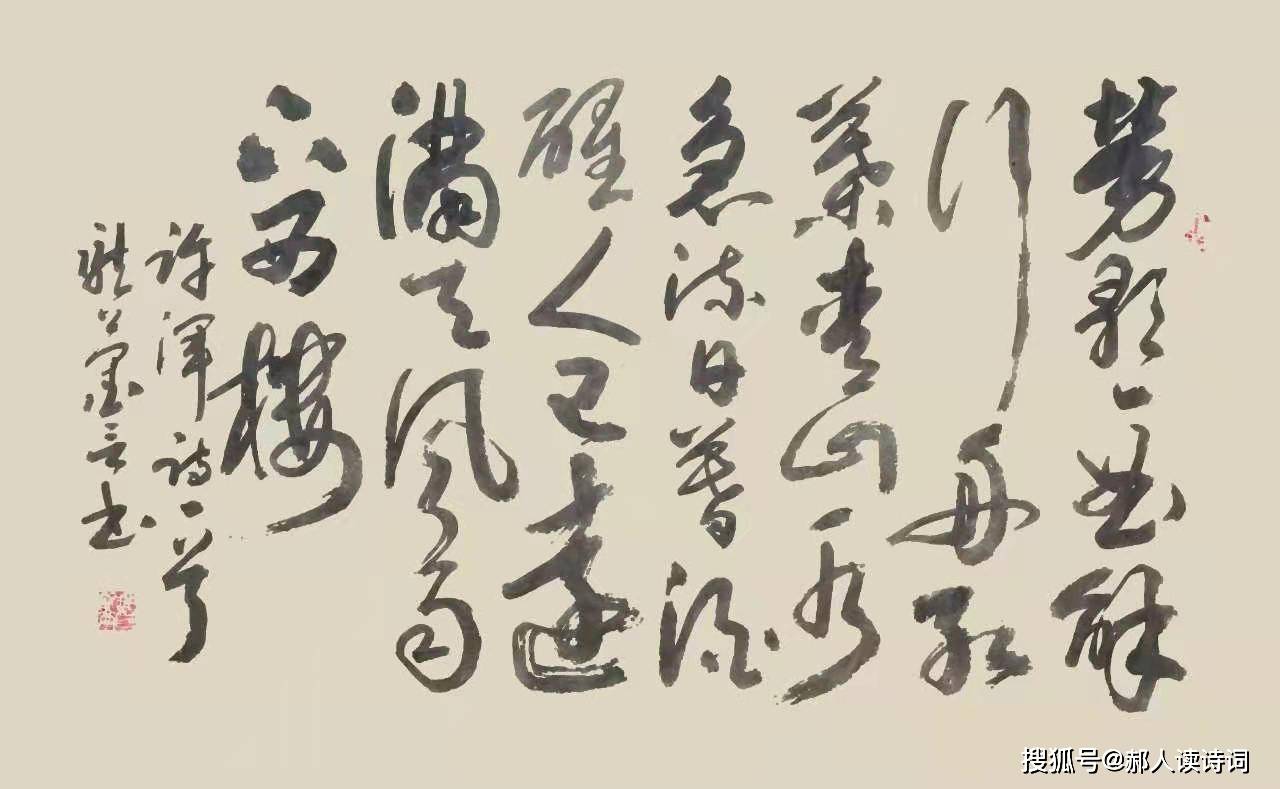 劳歌一曲解
行舟红
葉青山水
急流日暮酒
醒人已遠
满天风雨
下西樓
许渾诗一首
书
搜狐号@郝人读诗词